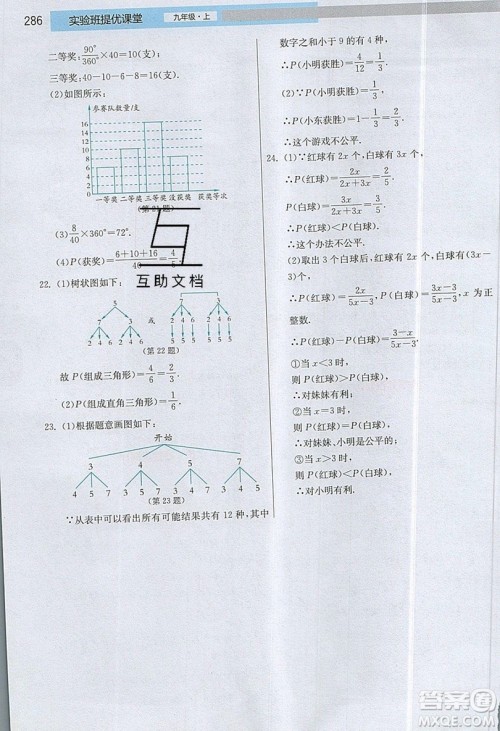 286 实验班提优课堂 九年级·上
二等奖:90°/360°×40=10(支)
三等奖:40-10-6-8=16(支)
(2)如图所示:
参赛队数量/支
16
14
12
10
8
6
4
2
一等奖 二等奖 三等奖 没获奖 获奖等次
(第21题)
(3)8/40×360°=72°.
(4)P(获奖)=6+10+16/40=4/5
互助文档
22. (1)树状图如下:
5
4 6 7
2 4 6 2 4 6 2 4 6
或
5
2 4 6
(第22题)
故 P(组成三角形)=4/6=2/3.
(2)P(组成直角三角形)=1/6.
23. (1)根据题意画图如下:
开始
3 4 5 7
4 5 7 3 5 7 3 4 7 3 4 5
(第23题)
∵从表中可以看出所有可能结果共有 12 种,其中
数字之和小于 9 的有 4 种,
∴P(小明获胜)=4/12=1/3.
(2)∵P(小明获胜)=1/3,
∴P(小东获胜)=1-1/3=2/3,
∴这个游戏不公平.
24. (1)∵红球有 2x 个,白球有 3x 个,
∴P(红球)=2x/2x+3x=2/5,
P(白球)=3x/2x+3x=3/5,
∴P(红球)<P(白球).
∴这个办法不公平.
(2)取出 3 个白球后,红球有 2x 个,白球有(3x-3)个,
∴P(红球)=2x/5x-3,P(白球)=3x-3/5x-3,x 为正
整数.
∴P(红球)-P(白球)=3-x/5x-3.
①当 x<3 时,
则 P(红球)>P(白球),
∴对妹妹有利.
②当 x=3 时,
则 P(红球)=P(白球),
∴对妹妹、小明是公平的.
③当 x>3 时,
则 P(红球)<P(白球),
∴对小明有利.
答案圈
MXQE.COM